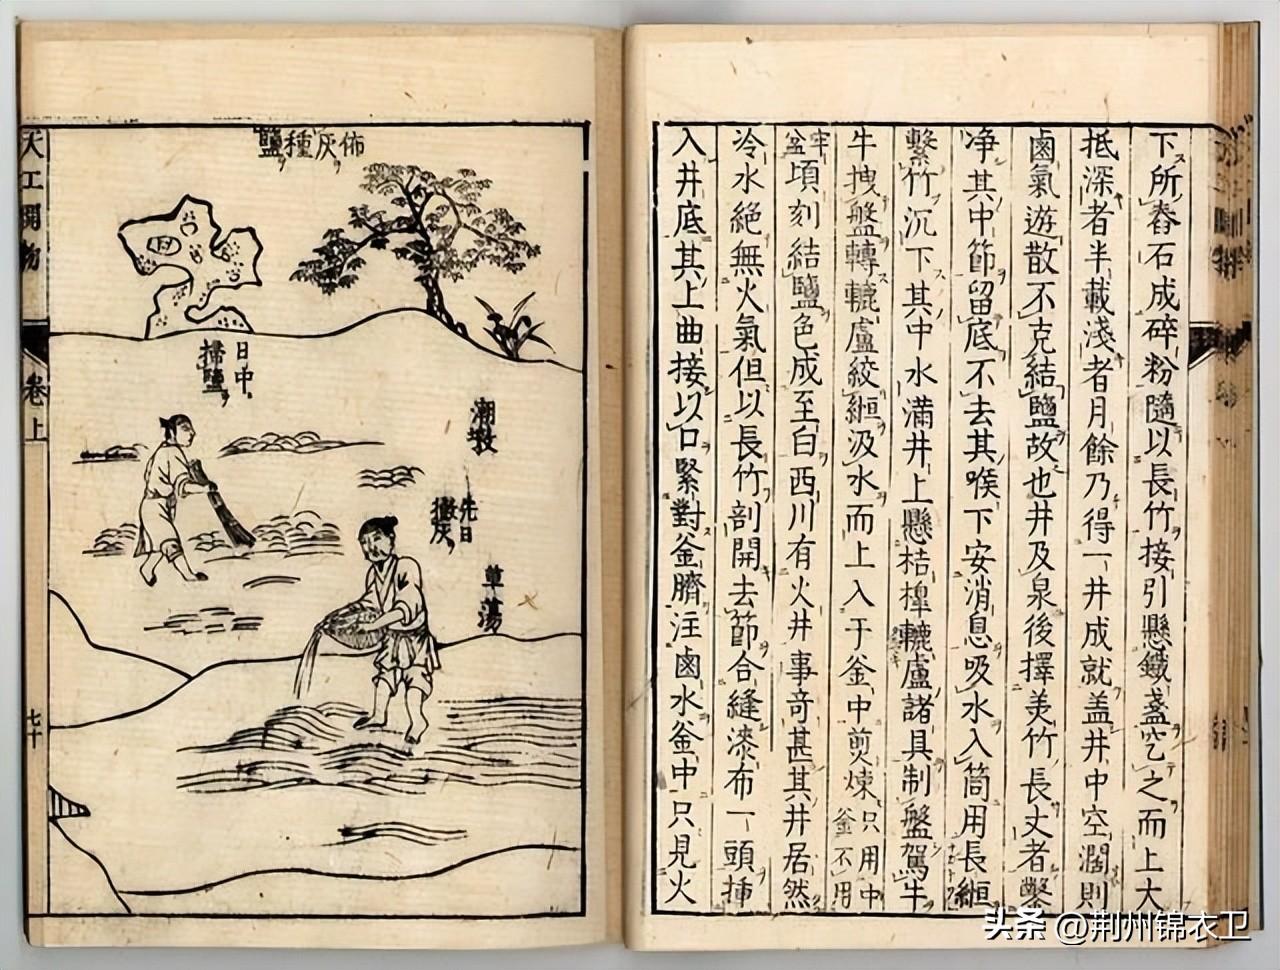 下所舂石成碎粉隨以長竹接引懸鐵盞挖之而上大
抵深者半載淺者月餘乃得一井成就盖井中空濶則
鹵氣遊散不克結鹽故也井及泉後擇美竹長丈者鑿
净其中節留底不去其喉下安消息吸水入筒用長緪
繫竹沉下其中水滿井上懸桔橰轆轤諸具制盤駕牛
牛拽盤轉轆轤絞緪汲水而上入于釜中煎煉只用中釜不用
牢盆頃刻結鹽色成至白西川有火井事竒甚其井居然
冷水絕無火氣但以長竹剖開去節合縫漆布一頭揷
入井底其上曲接以口緊對釜臍注鹵水釜中只見火
佈灰種鹽
日中
掃鹽
潮墩
先日
撒灰
草蕩
天工開物
卷上
七十
头条 @荆州锦衣卫